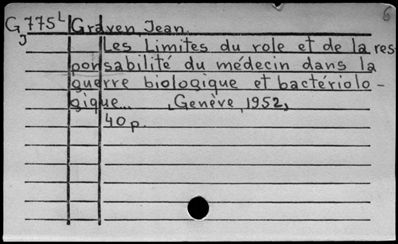 G 775 L Graven, Jean.
J Les Limites du role et de la res
ponsabilité du médecin dans la
guerre biologique et bactériolo-
gique... , Genève, 1952,
40 p.
6